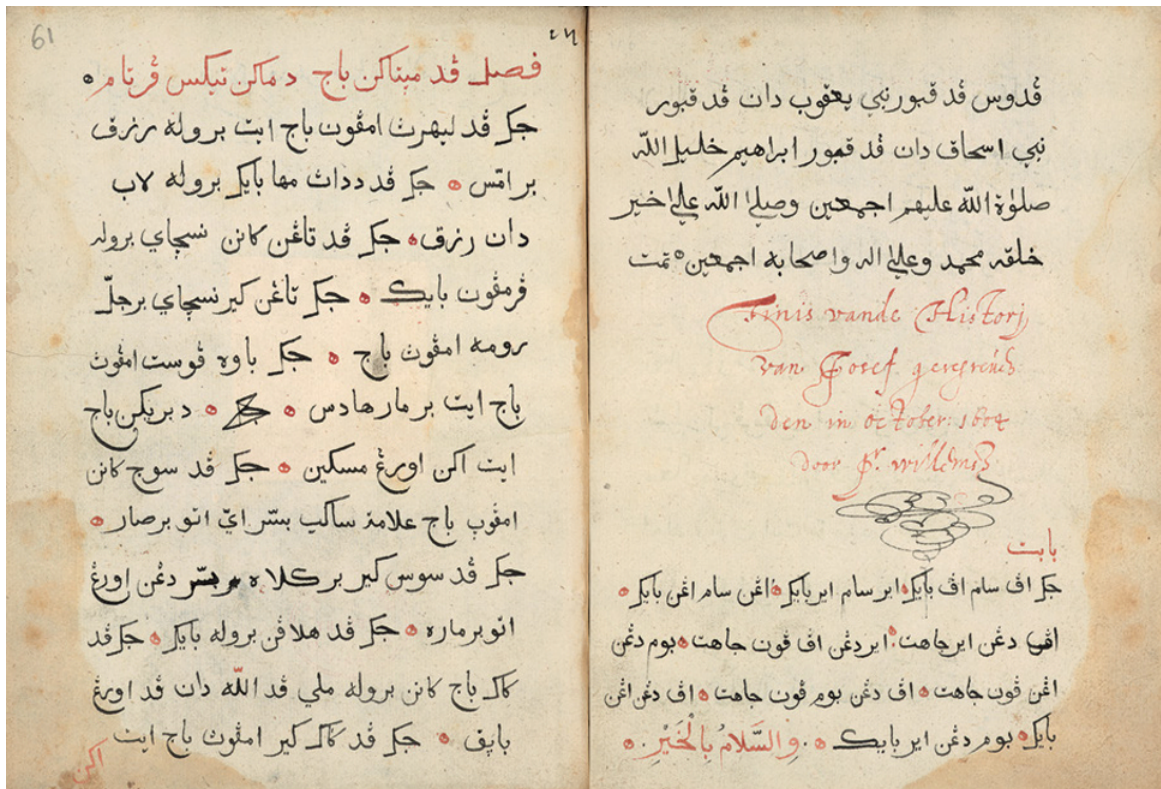 ڤدوس ڤد قبور نبي يعقوب دان ڤد قبور
نبي اسحاق دان ڤد قبور ابراهيم خليل الله
صلوٰة الله عليهم اجمعين وصلي الله علي اخير
خلقه محمد وعلي اله واصحابه اجمعين تمت
Finis vande Historj
van Josef geschreuē
den in October: 1604
door Pr. Willemsz
بابت
جک اڤ سام اڤ بايک اير سام ايربايک اڠن سام اڠن بايک
اڤ دڠن ايرجاهت ايردڠن اڤ ڤون جاهت بوم دڠن
اڠن ڤون جاهت اڤ دڠن بوم ڤون جاهت اڤ دڠن اڠن
بايک بوم دڠن ايربايک والسَّلامُ بِالْخَيْرِ
٦١
61
فصل ڤد مپتاکن باج دماکن تيکس ڤرتام
جک ڤد ليهرث امڤون باج ايت بروله رزق
برامس جک ڤد دداث مها بايک بروله لاب
دان رزق جک ڤد تاڠن کانن نسچاي بروله
ڤرمڤون بايک جک تاڠن کير نسچاي برجل
رومه امڤون باج جک باوه ڤوست امڤون
باج ايت برمارهادس دبريکن باج
ايت اکن اورڠ مسکين جک ڤد سوج کانن
امڤوپ باج علامة ساکيب بسر اي اتو برصار
جک ڤد سوس کير برکلاه بسر دڠن اورڠ
اتو برماره جک ڤد هلاڤن بروله بايک جک ڤد
کاک باج کانن بروله ملي ڤد الله دان ڤد اورڠ
بايق جک ڤد کاک کير امڤون باج ايت
اکن